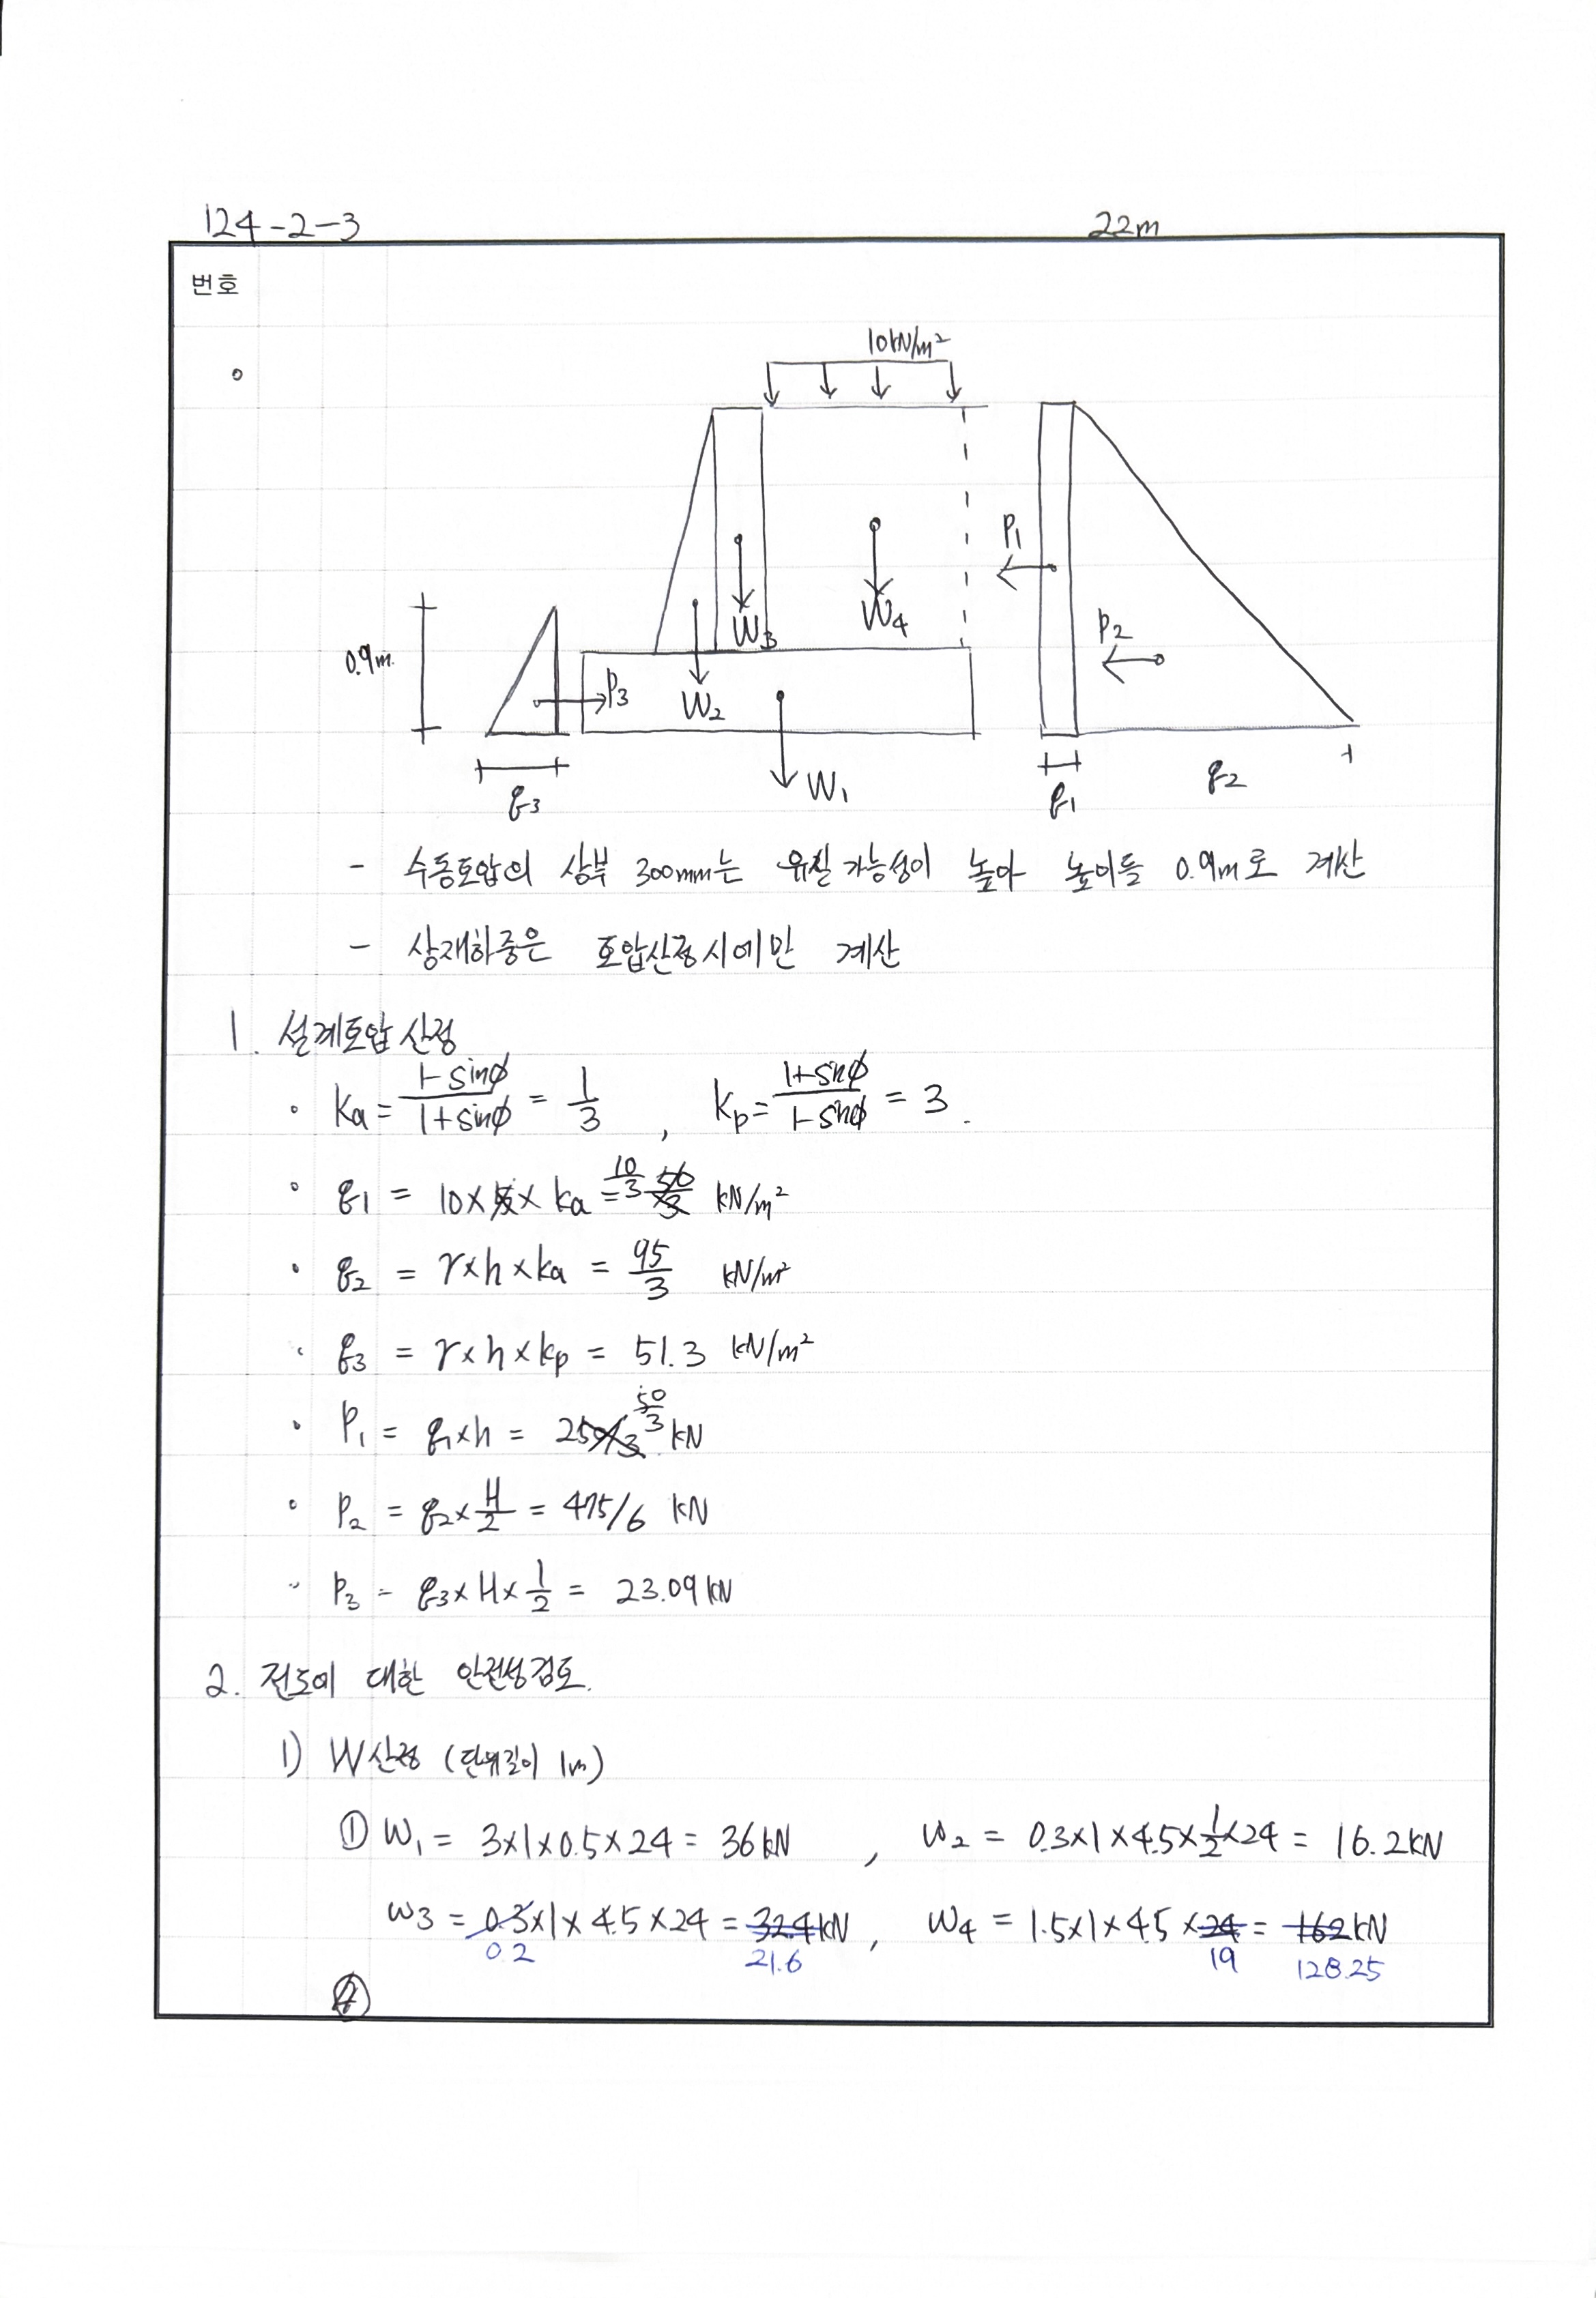 124-2-3
22m
번호
10kN/m²
P₁
W₃
W₄
P₂
0.9m
P₃
W₂
W₁
q₃
q₁
q₂
- 수동토압의 상부 300mm는 유실가능성이 높아 높이를 0.9m로 계산
- 상재하중은 토압산정시에만 계산
1. 설계토압산정
• Ka = (1-sinφ)/(1+sinφ) = 1/3 , Kp = (1+sinφ)/(1-sinφ) = 3.
• q₁ = 10 × × ka = 10/3 kN/m²
• q₂ = r×h×ka = 95/3 kN/m²
• q₃ = r×h×kp = 51.3 kN/m²
• P₁ = q₁×h = 50/3 kN
• P₂ = q₂×H/2 = 475/6 kN
• P₃ = q₃×H×1/2 = 23.09kN
2. 전도에 대한 안전성검토.
1) W산정 (단위길이 1m)
① W₁ = 3×1×0.5×24 = 36kN , W₂ = 0.3×1×4.5×1/2×24 = 16.2kN
W₃ = 0.3×1×4.5×24 = 32.4kN , W₄ = 1.5×1×4.5×24 = 162kN
0.2 21.6 19 128.25